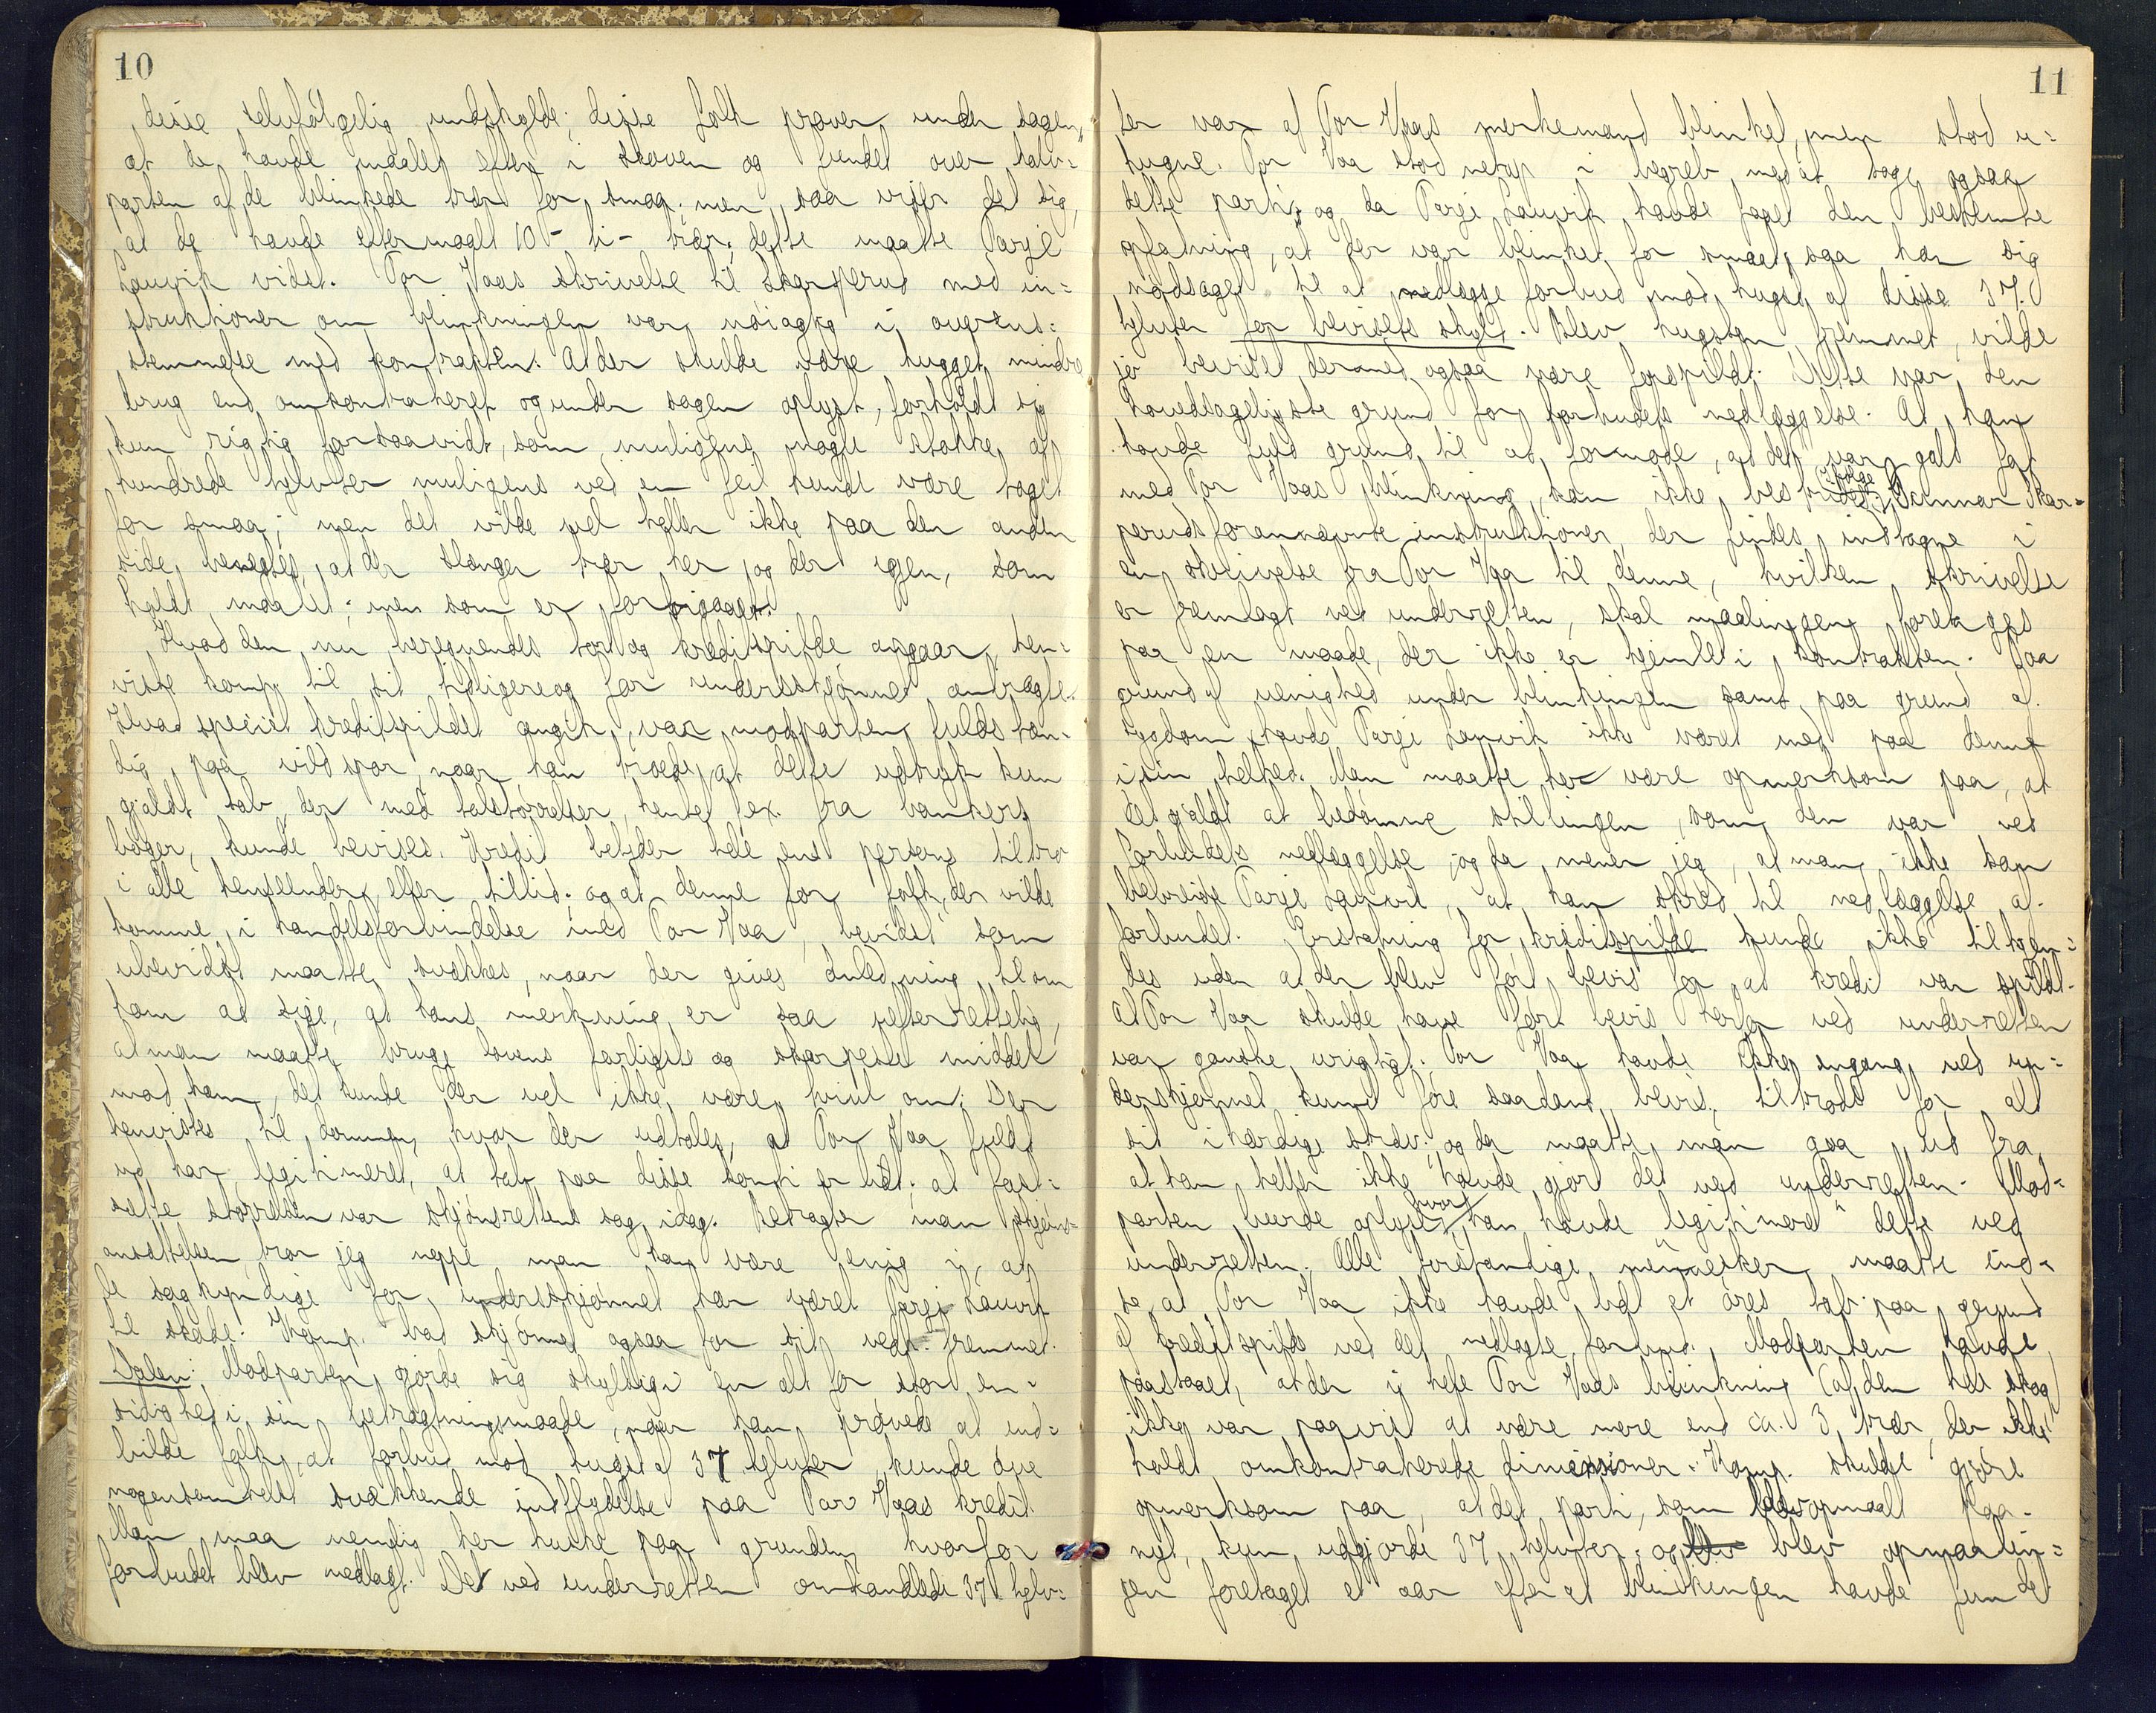 10
disse selvfølgelig undskylde; disse folk prøver under sagen,
at de havde maalt efter i skoven og fundet over halv-
parten af de blinkede trær for smaa; men saa viser det sig,
at de havde eftermaalt 10 - ti - trær; dette maatte Tarje
Lauvik vidst. Tor Vaas skrivelse til Skarperud med in=
struktioner om blinkningen var nøiagtig i overens=
stemmelse med kontrakten. At der skulde være hugget mindre
brug end omkontraheret og under sagen oplyst, forholdt sig
kun rigtig forsaavidt, som muligens nogle stokke af
hundrede tylvter muligens ved en feil kunde være taget
for smaa; men det vilde vel heller ikke paa den anden
side benegtes, at der slænger trær her og der igjen, som
holdt maalet; men som er forbigaaet.
Hvad den nu beregnendes tap og kreditspilde angaar, hen=
viste komp. til sit tidligere og før underskjønnet anførte.
Hvad specielt kreditspildet angik, var modparten fuldstæn-
dig paa vildspor, naar han troede, at dette udtryk kun
gjaldt tab, der med talstørrelser, hentet f.ex. fra bankers
bøger, kunde bevises. Kredit betyder hele ens persons tiltro
i alle henseender, eller tillid; og at denne for folk, der vilde
komme i handelsforbindelse med Tor Vaa, bevidst som
ubevidst maatte svækkes, naar der gives anledning til om
ham at sige, at hans merkning er saa uefterrettelig,
at man maatte bruge lovens farligste og skarpeste middel
mod ham, det kunde der vel ikke være tvivl om; Der
henvistes til dommen, hvor der udtales, at Tor Vaa fuldt
ud har legitimeret, at tab paa disse konti er lidt; at fast=
sætte størrelsen var skjønsrettens sag idag. Betragter man skjøns-
ansættelsen, tror jeg neppe man kan være enig i, at
de sagkyndige for underskjønnet har været Tarje Lauvik
til skade. Komp. bad skjønnet ogsaa for sit vedk. fremmet.
Dalen: Modparten gjorde sig skyldig i en alt for stor en-
sidighed i sin betragtningsmaade, naar han prøvede at ind=
bilde folk, at forbud mod hugst af 37 tylvter kunde øve
nogensomhelst svækkende indflydelse paa Tor Vaas kredit.
Man maa nemlig her huske paa grunden, hvorfor
forbudet blev nedlagt. De ved underretten omhandlede 37 tylv=
11
ter var af Tor Vaas merkemand blinket, men stod u=
hugne. Tor Vaa stod netop i begreb med at tage ogsaa
dette parti, og da Tarje Lauvik havde faaet den bestemte
opfatning, at der var blinket for smaat, saa han sig
nødsaget til at nedlægge forbud mod hugst af disse 37
tylvter for bevisets skyld. Blev hugsten fremmet, vilde
jo beviset dermed ogsaa være forspildt. Dette var den
hovedsageligste grund for forbudets nedlæggelse. At han
havde fuld grund til at formode, at det var galt fat
med Tor Vaas blinkning, kan ikke bestrides; Ifølge Gunnar Skar=
peruds forannævnte instruktioner, der findes indtagne i
en skrivelse fra Tor Vaa til denne, hvilken skrivelse
er fremlagt ved underretten, skal maalingen foretages
paa en maade, der ikke er hjemlet i kontrakten. Paa
grund af uenighed under blinkingen samt paa grund af
sygdom havde Tarje Lauvik ikke været med paa denne
i sin helhed. Man maatte her være opmerksom paa, at
det gjaldt at bedømme stillingen, som den var ved
forbudets nedlæggelse, og da mener jeg, at man ikke kan
bebreide Tarje Lauvik, at han skred til nedlæggelse af
forbudet. Erstatning for kreditspilde kunde ikke tilkjen=
des uden at der blev ført bevis for, at kredit var spildt.
At Tor Vaa skulde have ført bevis herfor ved underretten
var ganske urigtigt. Tor Vaa havde ikke engang ved un=
derskjønnet kunnet føre saadant bevis, tiltrods for alt
sit ihærdige stræv; og da maatte man gaa ud fra,
at han heller ikke havde gjort det ved underretten. Mod=
parten burde oplyse, hvor han havde "legitimeret" dette ved
underretten. Alle forstandige mennesker maatte ind=
se, at Tor Vaa ikke havde lidt et øres tab paa grund
af kreditspilde ved det nedlagte forbud. Modparten havde
paastaaet, at der i hele Tor Vaas blinkning (af den hele skog)
ikke var paavist at være mere end ca. 3 trær, der ikke
holdt omkontraherede dimensioner. Komp. skulde gjøre
opmerksom paa, at det parti, som blev opmaalt paa-
nyt, kun udgjorde 37 tylvter; og blev opmaalin=
gen foretaget et aar efter at blinkingen havde fundet